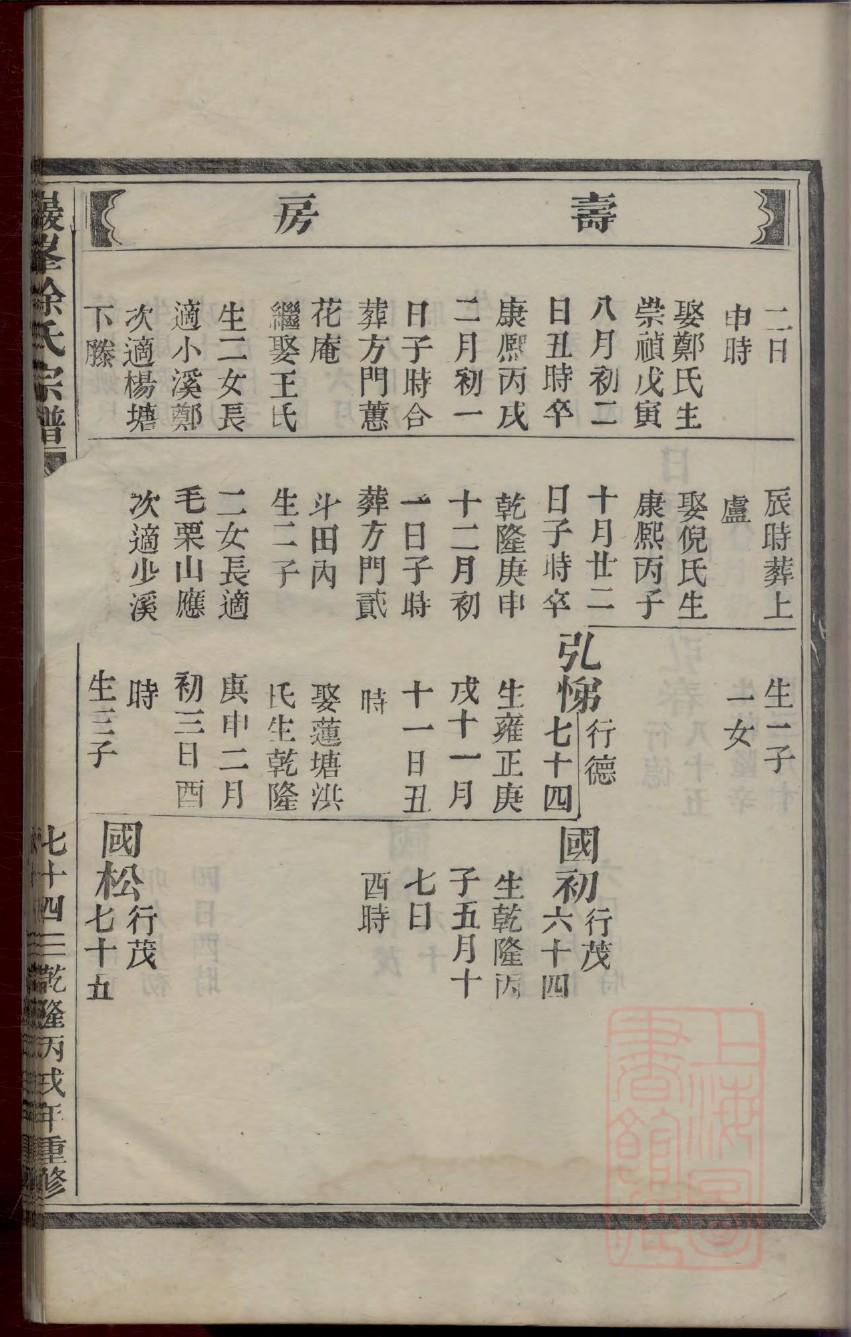 壽房
二日
申時
娶鄭氏生
崇禎戊寅
八月初二
日丑時卒
康熈丙戌
二月初一
日子時合
葬方門蕙
花庵
繼娶王氏
生二女長
適小溪鄭
次適楊塘
下滕
辰時葬上
盧
娶倪氏生
康熈丙子
十月廿二
日子時卒
乾隆庚申
十二月初
一日子時
葬方門貳
斗田內
生二子
二女長適
毛栗山應
次適少溪
生一子
一女
弘悌行德
七十四
生雍正庚
戌十一月
十一日丑
時
娶蓮塘洪
氏生乾隆
庚申二月
初三日酉
時
生三子
國初行茂
六十四
生乾隆丙
子五月十
七日
酉時
國松行茂
七十五
巖峯徐氏宗譜
七十四
乾隆丙戌年重修
上海圖書館藏